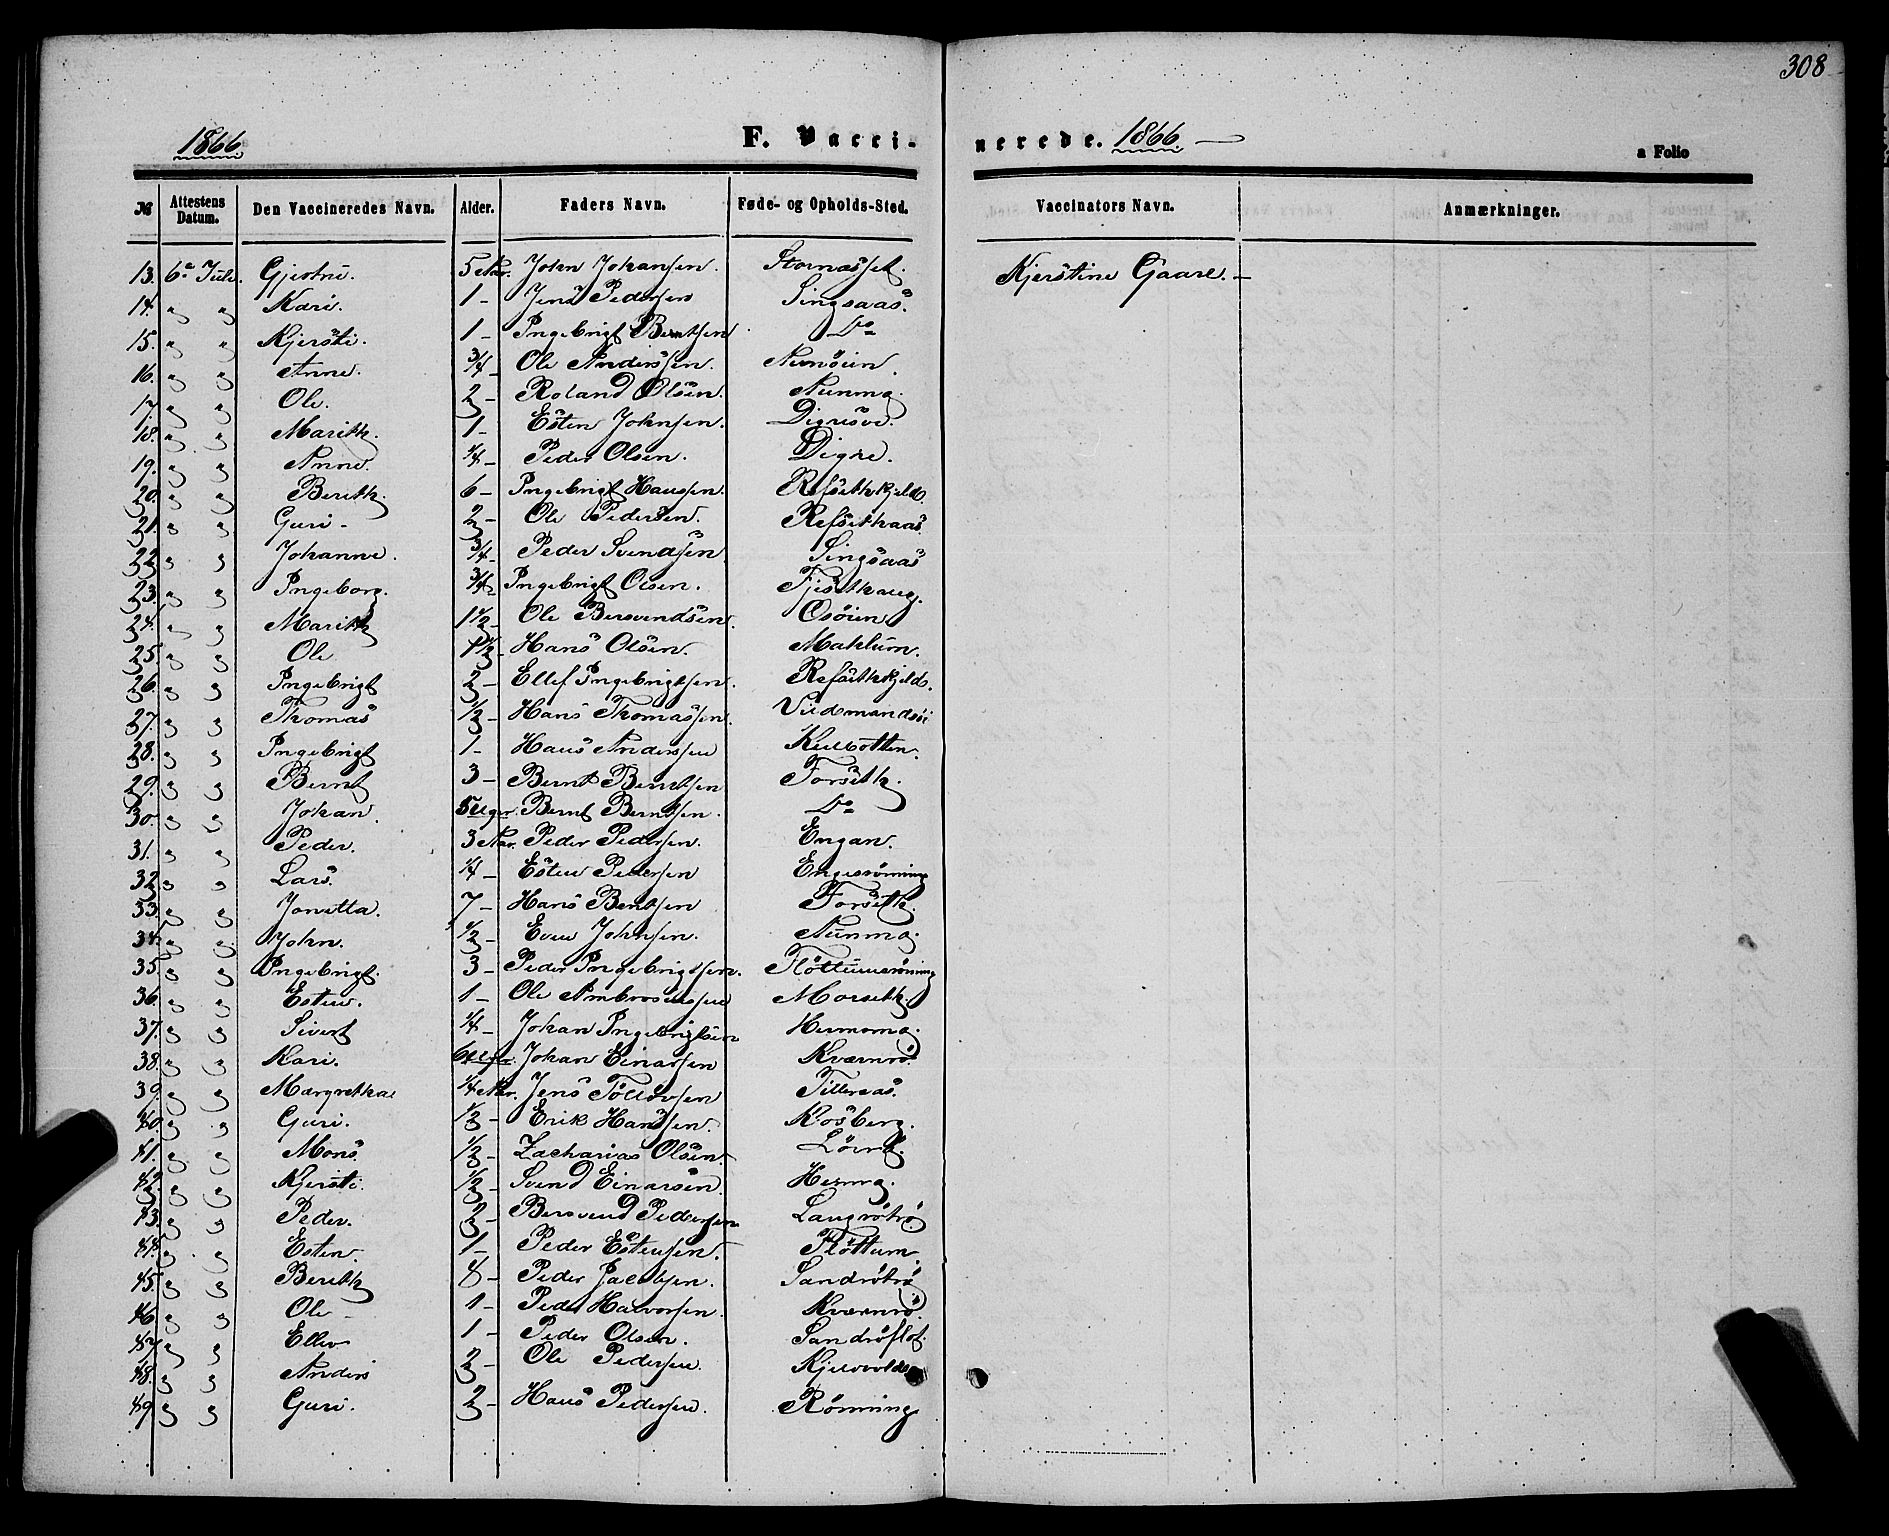 308
1866. F. Vacci- nerede. 1866.
a Folio
№ Attestens Datum. Den Vaccineredes Navn. Alder. Faders Navn. Føde- og Opholds-Sted. Vaccinators Navn. Anmærkninger.
13. 6te Juli. 5 Aar. John Johansen. Kjerstine Gaare. —
14. " " Kari. 1 - Jens Pedersen Singsaas.
15. " " Kjersti. 1 - Ingebrigt Berntsen Do
16. " " Anne. 3/4 - Ole Anderssen.
17. " " Ole. 2 - Roland Olsen.
18. " " Marith. 1 - Esten Johnsen. Digresve.
19. " " Anne. 1/4 - Peder Olsen. Digre.
20. " " Berith. 6 - Ingebrigt Hansen. Refsethkjeld.
21. " " Guri - 2 - Ole Pedersen. Refsethaas.
22. " " Johanne. 3/4 - Peder Svendsen Singsaas
23. " " Ingeborg. 3/4 - Ingebrigt Olsen.
24. " " Marith 1 1/2 - Ole Bersvendsen. Osøien
25. " " Ole Hans Olsen. Mahlum.
26. " " Ingebrigt 2 - Ellef Ingebrigtsen. Refsethkjeld.
27. " " Thomas 1/2 - Hans Thomassen.
28. " " Ingebrigt 1 - Hans Anderssen
29. " " Bernt 3 - Bernt Berntsen Forseth.
30. " " Johan. 5 Uger. Bernt Berntsen. Do
31. " " Peder. 3 Aar. Peder Pedersen. Engan.
32. " " Lars. 1/4 - Esten Pedersen
33. " " Jonetta. 7 - Hans Bentsen Forseth.
34. " " John. 1/2 - Even Johnsen.
35. " " Ingebrigt. 3 - Peder Ingebrigtsen.
36. " " Esten. 1 - Ole Ambrosiussen Morseth.
37. " " Sivert 1/4 - Johan Ingebrigtsen
38. " " Kari. 6 Uger. Johan Einarsen Kværnrø
39. " " Margretha 1/4 Aar. Jens Tollovsen
40. " " Guri. 1/2 - Erik Hansen. Rosberg.
41. " " Mons. 1/2 - Zacharias Olsen.
42. " " Kjersti. 1/2 - Svend Einarsen.
43. " " Peder. 2 - Bersvend Pedersen
44. " " Esten. 1 - Peder Estensen. Fløttum
45. " " Berith Peder Jacobsen.
46. " " Ole - 1 - Peder Halvorsen. Kværnrø
47. " " Ellev 1 - Peder Olsen.
48. " " Anders 2 - Ole Pedersen.
49. " " Guri. 2 - Hans Pedersen. Rønning